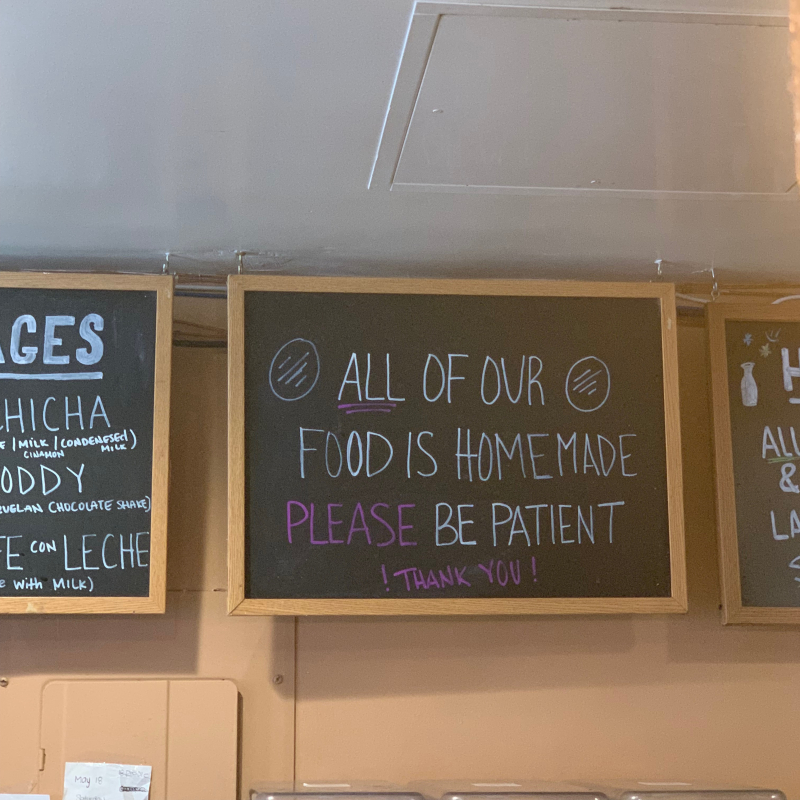 AGES
CHICHA
/MILK/CONDENESED
CINAMON MILK)
ODDY
UELAN CHOCOLATE SHAKE)
FE CON LECHE
E WITH MILK)
ALL OF OUR
FOOD IS HOMEMADE
PLEASE BE PATIENT
! THANK YOU !
H
ALL
&
LA
S
May 18